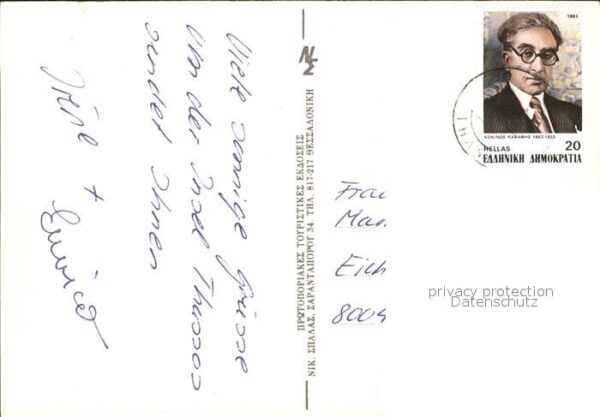 Viele sonnige Grüsse
Von der Insel Thassos
sendet Ihnen
+
ΠΡΩΤΟΠΟΡΙΑΚΕΣ ΤΟΥΡΙΣΤΙΚΕΣ ΕΚΔΟΣΕΙΣ
ΝΙΚ. ΣΠΑΛΑΣ, ΣΑΡΑΝΤΑΠΟΡΟΥ 34 ΤΗΛ. 817-217 ΘΕΣΣΑΛΟΝΙΚΗ
1983
ΚΩΝ/ΝΟΣ ΚΑΒΑΦΗΣ 1863-1933
HELLAS 20
ΕΛΛΗΝΙΚΗ ΔΗΜΟΚΡΑΤΙΑ
Frau
Mar
Eich
8004
privacy protection
Datenschutz